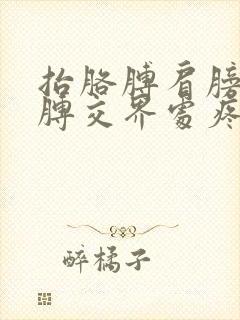 抬胳膊肩膀
膊交界處疼
醉橘子